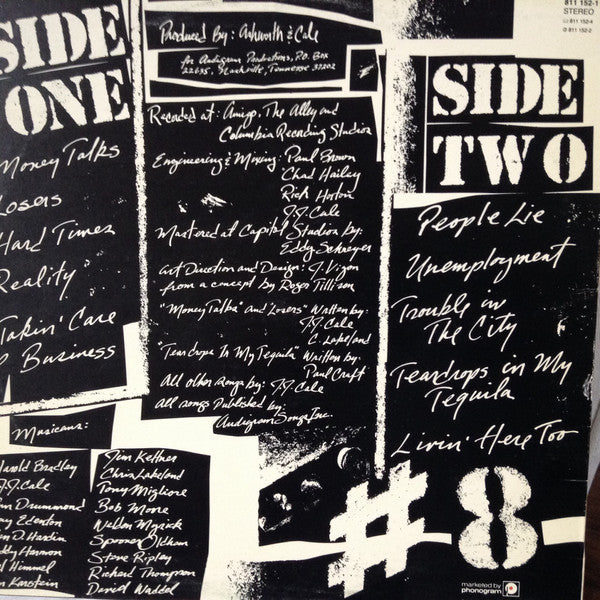 SIDE
ONE
Money Talks
Losers
Hard Times
Reality
Takin' Care
Business
Produced By: Ashworth & Cale
for Audigram Productions, P.O. Box
22635, Nashville, Tennessee 37202
Recorded at: Amigo, The Alley and
Columbia Recording Studios
Engineering & Mixing: Paul Brown
Chad Hailey
Rick Horton
J.J. Cale
Mastered at Capitol Studios by:
Eddy Schreyer
Art Direction and Design: J. Vigon
from a concept by Roger Tillison
"Money Talks" and "Losers" Written by:
J.J. Cale
C. Lakeland
"Teardrops In My Tequila" Written by:
Paul Craft
All other songs by: J.J. Cale
All songs Published by:
Audigram Songs Inc.
811 152-1
STEREO
811 152-4
811 152-2
SIDE
TWO
People Lie
Unemployment
Trouble in
The City
Teardrops in My
Tequila
Livin' Here Too
Musicians:
Harold Bradley
J.J. Cale
Drummond
Edenton
D. Hardin
Harmon
Himmel
Karstein
Jim Keltner
Chris Lakeland
Tony Migliore
Bob Moore
Weldon Myrick
Spooner Oldham
Steve Ripley
Richard Thompson
David Waddel
#8
marketed by
phonogram